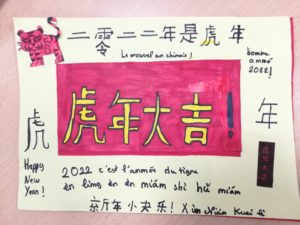 二零二二年是虎年
Le nouvel an chinois !
bonne
année
2022!
虎年大吉!
虎
年
Happy
New
Year!
2022 c'est l'année du tigre
èr líng èr èr nián shì hǔ nián
新年快乐! Xīn Nián Kuài lè